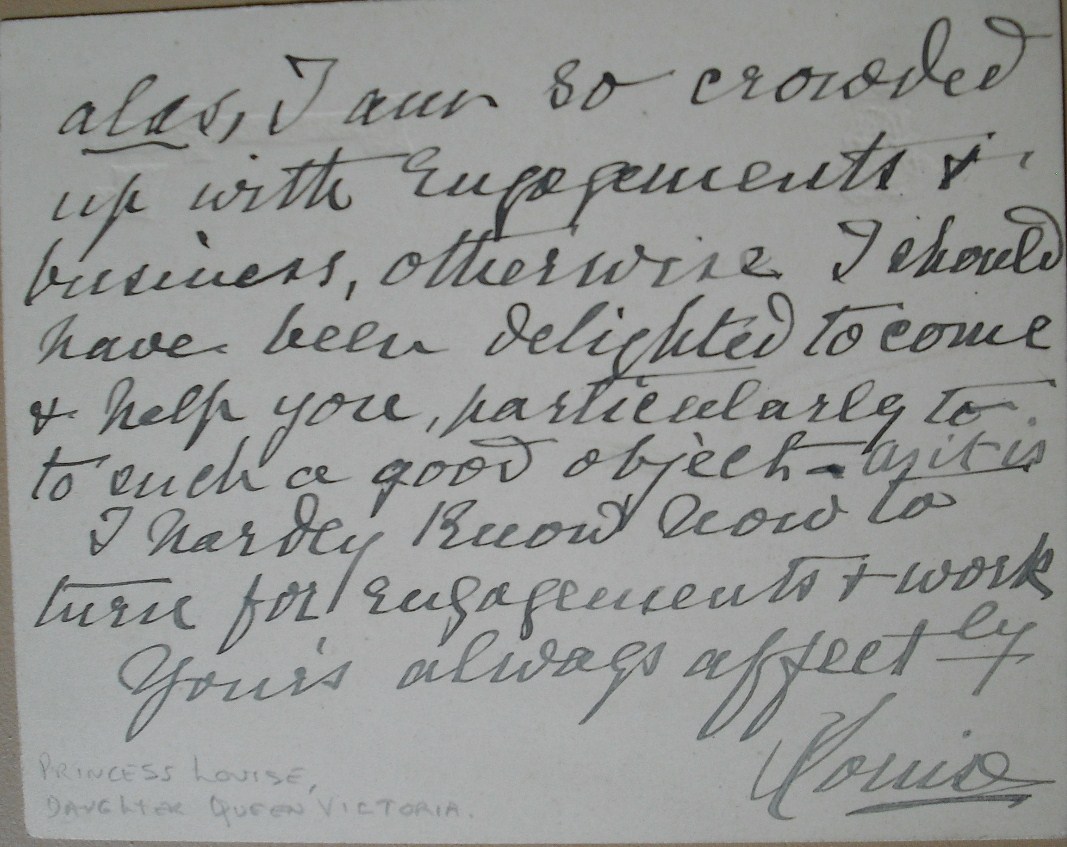 alas, I am so crowded
up with Engagements &
business, otherwise I should
have been delighted to come
& help you, particularly to
to such a good object - as it is
I hardly know how to
turn for Engagements & work
Your's always affectly
Louise
PRINCESS LOUISE,
DAUGHTER QUEEN VICTORIA.